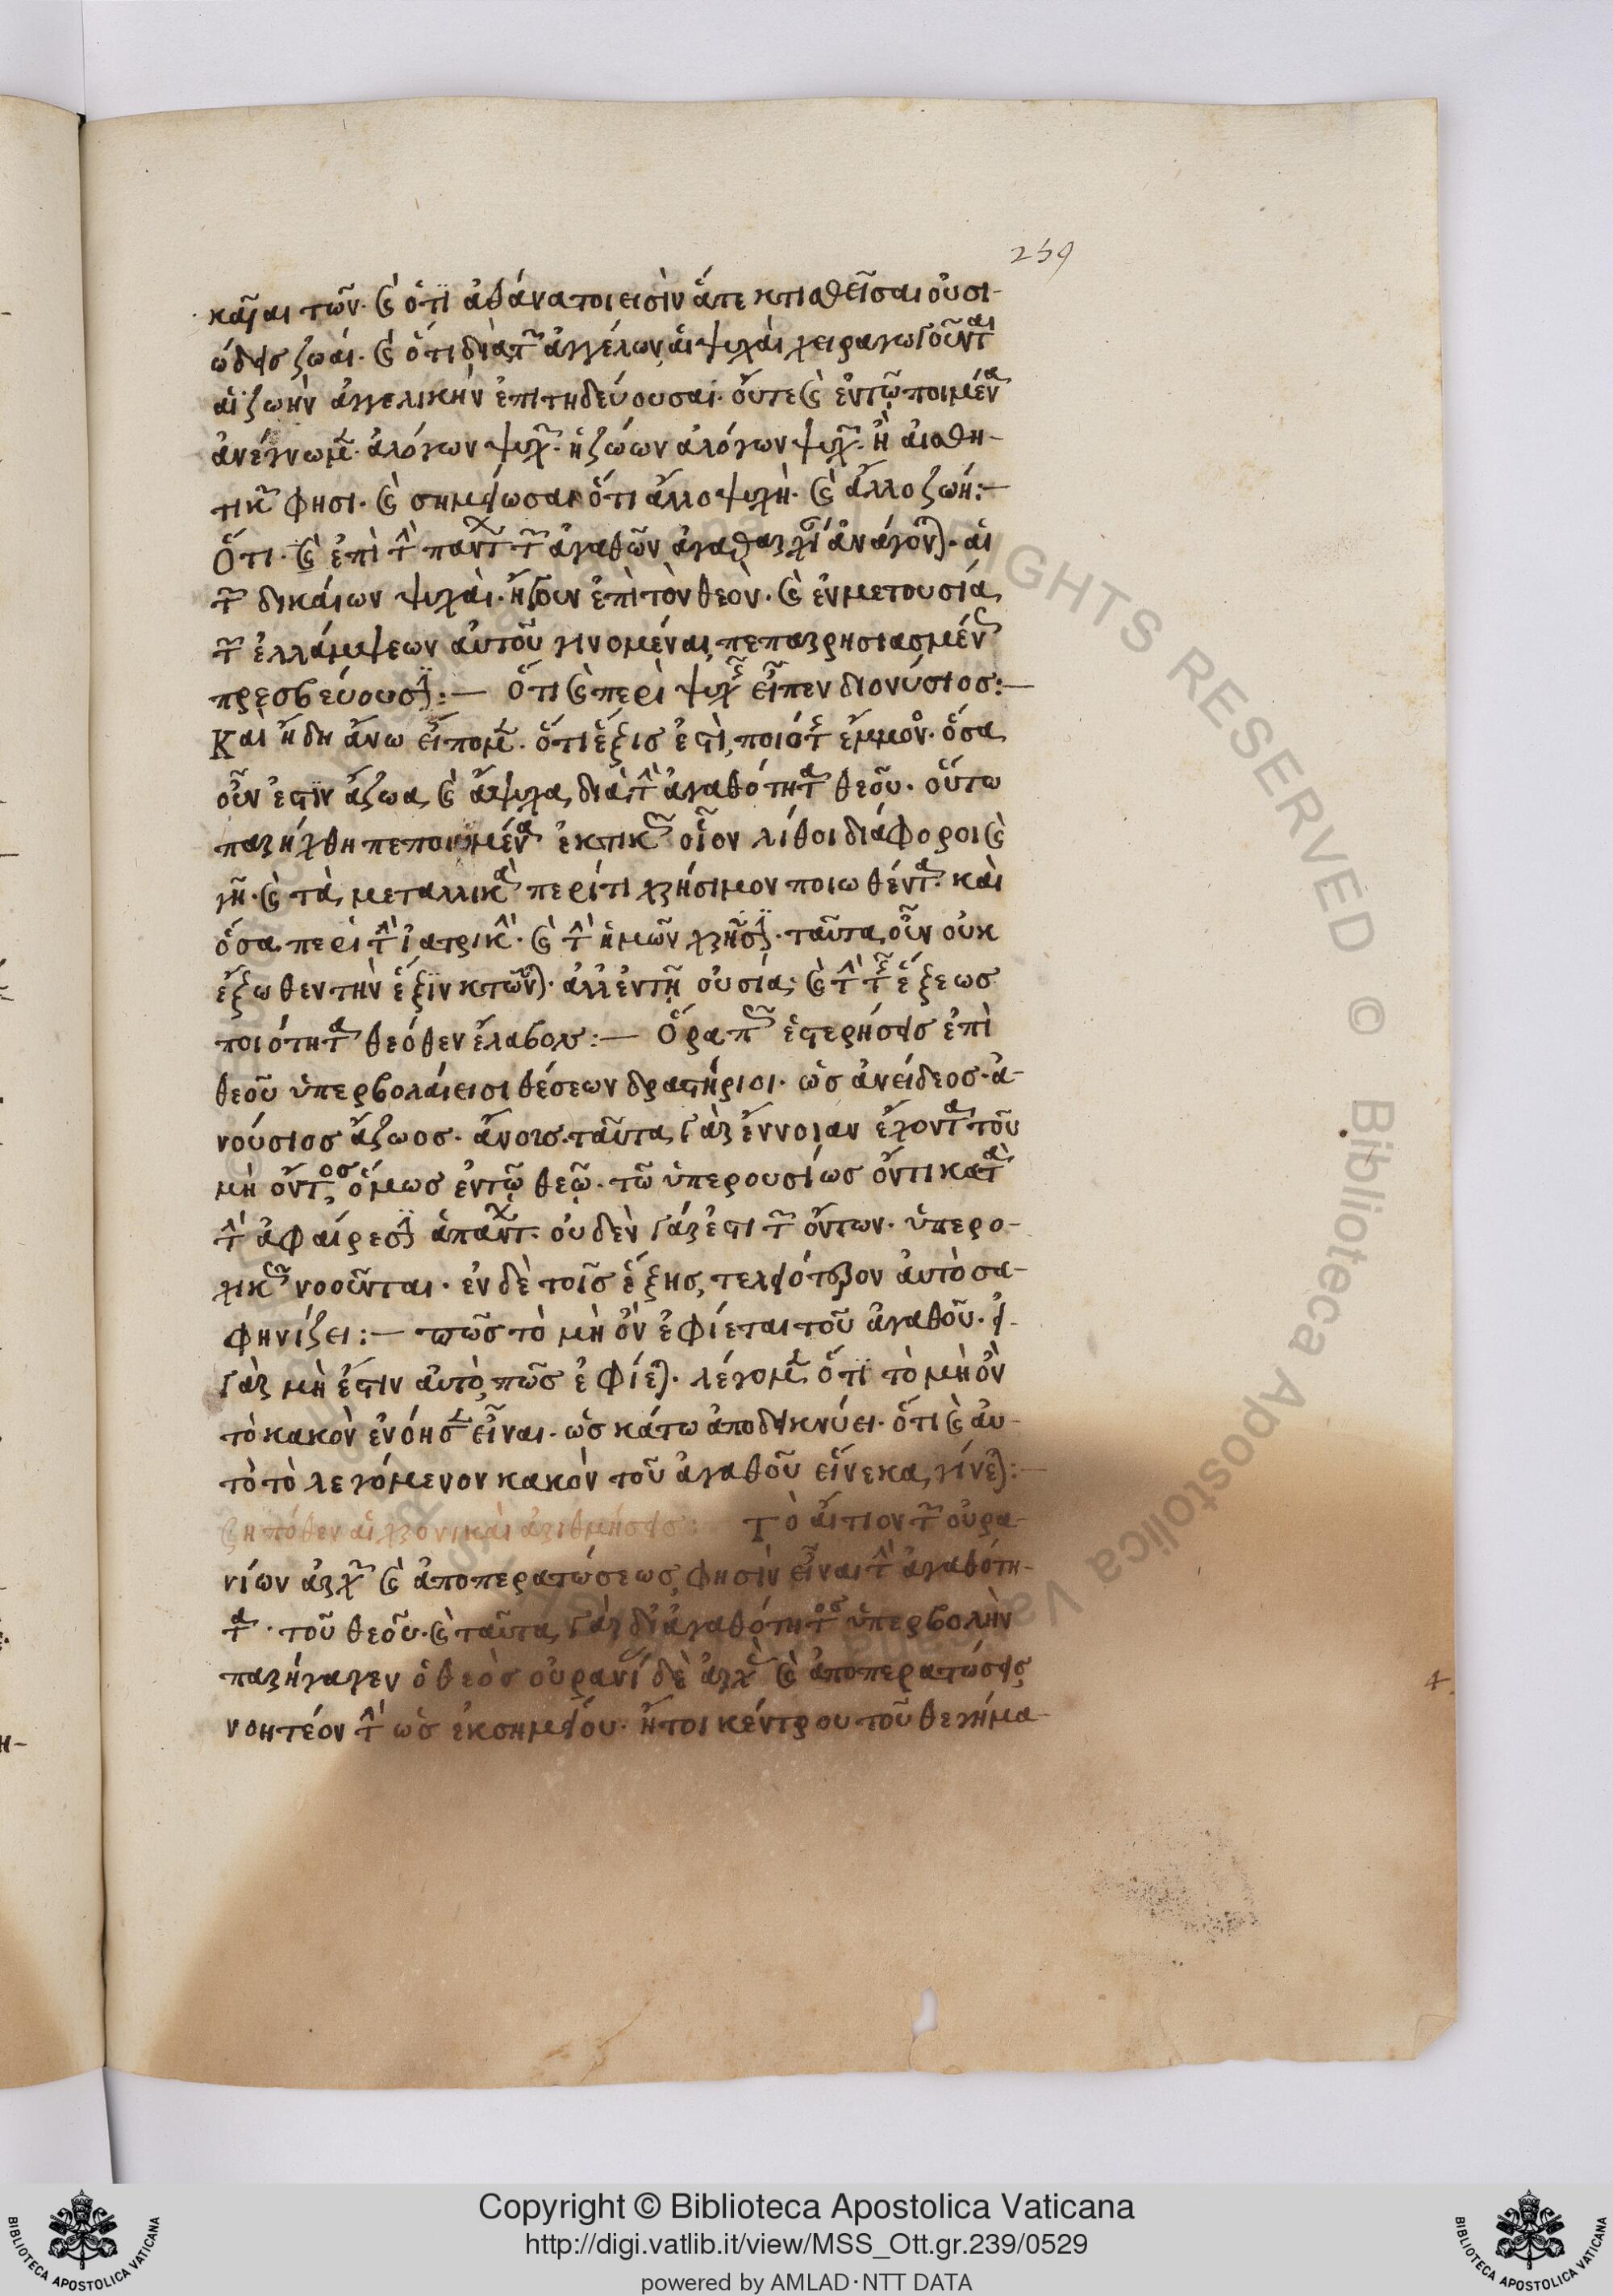 239
καὶ αι των. καὶ ὅτι ἀθάνατοι εἰσὶν ἅτε κτισθεῖσαι οὐσι-
ώδεις ζωαί. καὶ ὅτι διὰ τῶν ἀγγέλων, αἱ ψυχαὶ χειραγωγοῦνται
αἱ ζωὴν ἀγγελικὴν ἐπιτηδεύουσαι. οὕτε καὶ ἐν τῷ ποιμένα
ἀνέγνωμεν. ἀλόγων ψυχῶν. ἡ ζώων ἀλόγων ψυχὴ. ἢ αἰσθη-
τικὴ φησι. καὶ σημείωσαι ὅτι ἄλλο ψυχὴ. καὶ ἄλλο ζωή:—
Ὅτι. καὶ ἐπὶ τὴν πάντων τῶν ἀγαθῶν ἀγαθαρχίαν ἀνάγονται. αἱ
τῶν δικαίων ψυχαὶ. ἤγουν ἐπὶ τὸν θεὸν. καὶ ἐν μετουσία
τῶν ἐλλάμψεων αὐτοῦ γινομέναι, πεπαρρησιασμένως
πρεσβεύουσιν:— Ὅτι καὶ περὶ ψυχῆς εἶπεν διονύσιος:—
Καὶ ἤδη ἄνω εἴπομεν. ὅτι ἕξις ἐστὶ, ποιότης ἔμμονος. ὅσα
οὖν ἐστιν ἄζωα, καὶ ἄψυχα, διὰ τὴν ἀγαθότητα θεοῦ. οὕτω
παρήχθη πεποιημένα ἑκτικῶς οἷον λίθοι διάφοροι καὶ
γῆ. καὶ τὰ μεταλλικὰ περί τι χρήσιμον ποιωθέντα. καὶ
ὅσα περὶ τὴν ἰατρικὴν. καὶ τὴν ἡμῶν χρῆσιν. ταῦτα οὖν οὐκ
ἔξωθεν τὴν ἕξιν κτῶνται. ἀλλ' ἐν τῇ οὐσία; καὶ τὴν τῆς ἕξεως
ποιότητα θεόθεν ἔλαβον:— Ὅρα πῶς ἑστερήσεις ἐπὶ
θεοῦ ὑπερβολαί εἰσι θέσεων δραστήριοι. ὡς ἀνείδεος. ἀ-
νούσιος ἄζωος. ἄνους. ταῦτα γὰρ ἔννοιαν ἔχοντα τοῦ
μὴ ὄντος, ὅμως ἐν τῷ θεῷ. τῶ ὑπερουσίως ὄντι κατὰ
τὴν ἀφαίρεσιν ἁπάντων. οὐδὲν γάρ ἐστι τῶν ὄντων. ὑπερο-
χικῶς νοοῦνται. ἐν δὲ τοῖς ἑξῆς, τελειότερον αὐτὸ σα-
φηνίζει:— πῶς τὸ μὴ ὂν ἐφίεται τοῦ ἀγαθοῦ. εἰ
γὰρ μὴ ἔστιν αὐτὸ, πῶς ἐφίεται. λέγομεν ὅτι τὸ μὴ ὂν
τὸ κακὸν ἐνόησεν εἶναι. ὡς κάτω ἀποδεικνύει. ὅτι καὶ αὐ-
τὸ τὸ λεγόμενον κακὸν τοῦ ἀγαθοῦ εἵνεκα, γίνεται:—
ζη πόθεν αἱ χρονικαὶ ἀριθμήσεις: Τὸ αἴτιον τῶν οὐρα-
νίων ἀρχῶν καὶ ἀποπερατώσεως, φησὶν εἶναι τὴν ἀγαθότη-
τα. τοῦ θεοῦ. καὶ ταῦτα γὰρ δι' ἀγαθότητος ὑπερβολὴν
παρήγαγεν ὁ θεὸς οὐρανίαν δὲ ἀρχὴν καὶ ἀποπερατώσεις,
νοητέον τὴν ὡς ἐκ σημείου. ἤτοι κέντρου τοῦ θεγήμα-
Copyright © Biblioteca Apostolica Vaticana
http://digi.vatlib.it/view/MSS_Ott.gr.239/0529
powered by AMLAD·NTT DATA